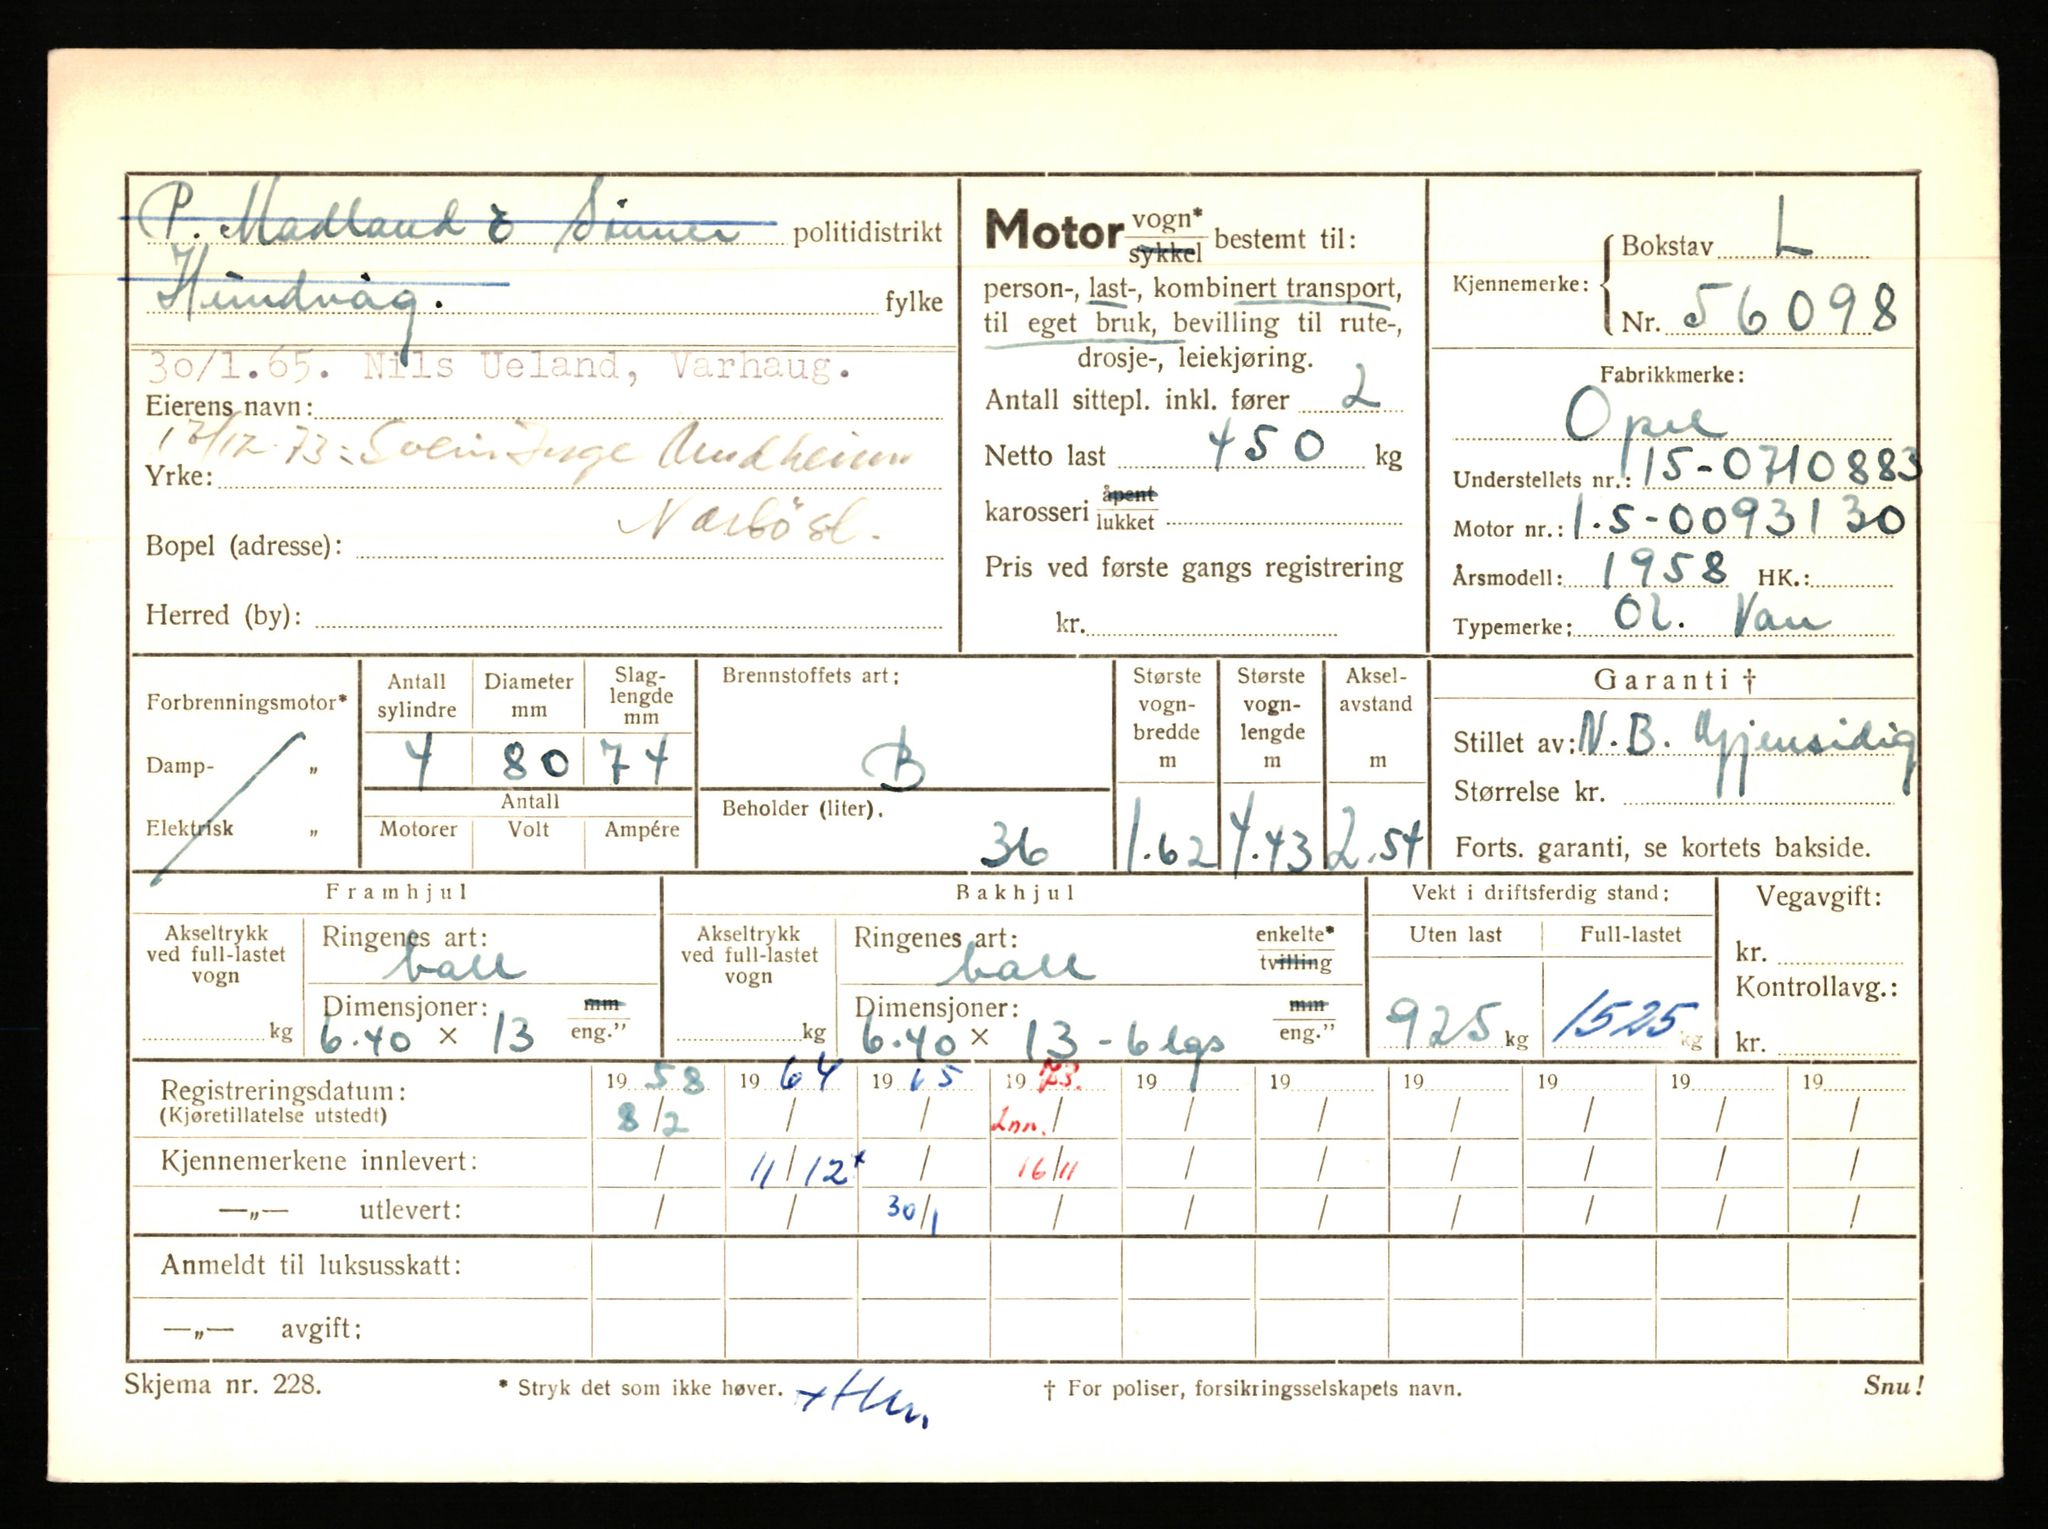 P. Madland & Sinner politidistrikt
Hundvåg. fylke
30/1.65. Nils Ueland, Varhaug.
Eierens navn:
17/12-73: Svein Inge Undheim
Yrke:
Nærbö st.
Bopel (adresse):
Herred (by):
Motor vogn* sykkel bestemt til:
person-, last-, kombinert transport,
til eget bruk, bevilling til rute-,
drosje-, leiekjøring.
Antall sittepl. inkl. fører 2
Netto last 450 kg
karosseri åpent lukket
Pris ved første gangs registrering
kr.
Kjennemerke: Bokstav L
Nr. 56098
Fabrikkmerke:
Opel
Understellets nr.: 15-0710883
Motor nr.: 1.5-0093130
Årsmodell: 1958 HK.:
Typemerke: Ol. Van
Forbrenningsmotor*
Damp- „
Elektrisk „
Antall sylindre 4
Diameter mm 80
Slag-lengde mm 74
Antall
Motorer Volt Ampére
Brennstoffets art:
B
Beholder (liter).
36
Største vogn-bredde m 1.62
Største vogn-lengde m 4.43
Aksel-avstand m 2.54
Garanti †
Stillet av: N.B. Gjensidig
Størrelse kr.
Forts. garanti, se kortets bakside.
Framhjul
Akseltrykk ved full-lastet vogn
kg
Ringenes art:
ball
Dimensjoner: mm eng.”
6.40 × 13
Bakhjul
Akseltrykk ved full-lastet vogn
kg
Ringenes art: enkelte* tvilling
ball
Dimensjoner: mm eng.”
6.40 × 13 - 6 lgs
Vekt i driftsferdig stand:
Uten last Full-lastet
925 kg 1525 kg
Vegavgift:
kr.
Kontrollavg.:
kr.
Registreringsdatum: 1958 1964 1965 1973. 19 19 19 19 19 19
(Kjøretillatelse utstedt) 8/2 / / Inn. / / / / / / /
Kjennemerkene innlevert: / 11/12* / 16/11 / / / / / /
—„— utlevert: / / 30/1 / / / / / / /
Anmeldt til luksusskatt:
—„— avgift:
Skjema nr. 228. * Stryk det som ikke høver. † For poliser, forsikringsselskapets navn. Snu!